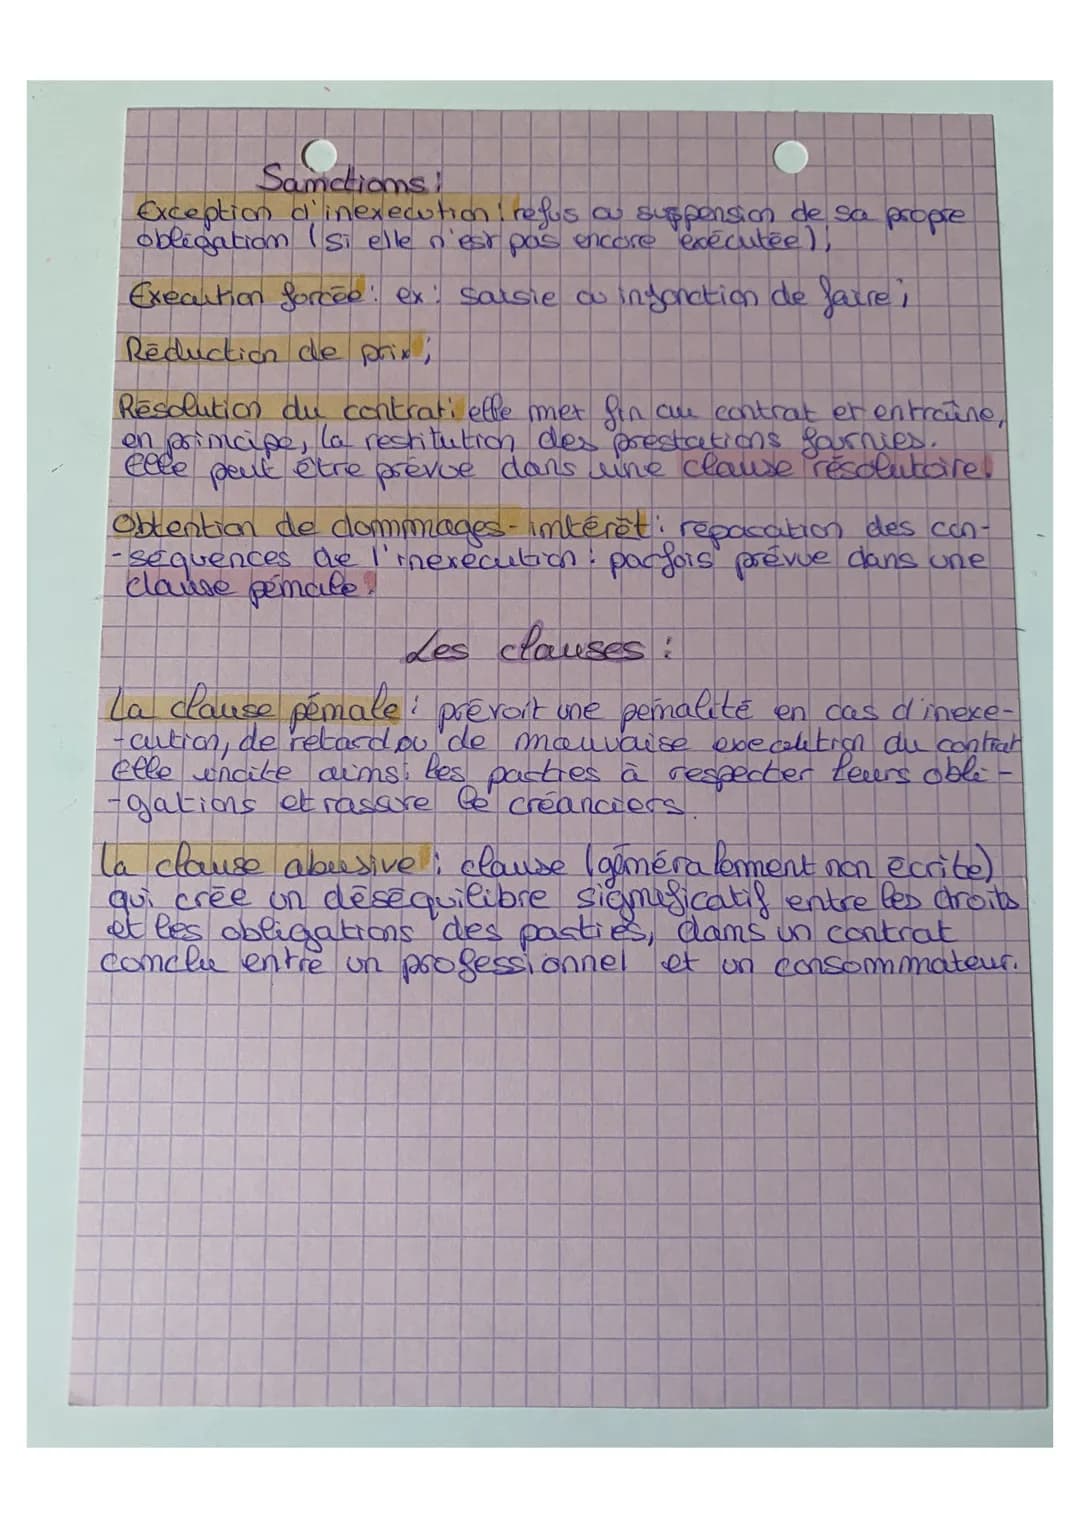 Sanctions :
Exception d'inexecution : refus ou suspension de sa propre
obligation (si elle n'est pas encore exécutée) ;
Execution forcée : ex : saisie ou injonction de faire ;
Réduction de prix ;
Résolution du contrat : elle met fin au contrat et entraîne,
en principe, la restitution des prestations fournies.
Elle peut être prévue dans une clause résolutoire.
Obtention de dommages-intérêt : reparation des con-
-séquences de l'inexecution : parfois prévue dans une
clause pénale.
Les clauses :
La clause pénale : prévoit une pénalité en cas d'inexe-
-cution, de retard ou de mauvaise execution du contrat
Elle incite ainsi les parties à respecter leurs obli-
-gations et rassure le créanciers.
La clause abusive : clause (généralement non écrite)
qui crée un déséquilibre significatif entre les droits
et les obligations des parties, dans un contrat
conclu entre un professionnel et un consommateur.